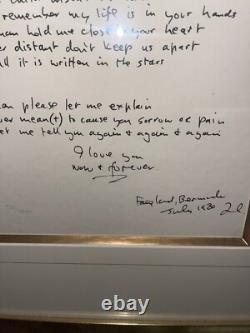 remember my life is in your hands
man hold me close to your heart
er distant don't keep us apart
ll it is written in the stars
an please let me explain
ver mean(t) to cause you sorrow or pain
et me tell you again & again & again
I love you
now & forever
Fairyland, Bermuda
July 1980
ebay